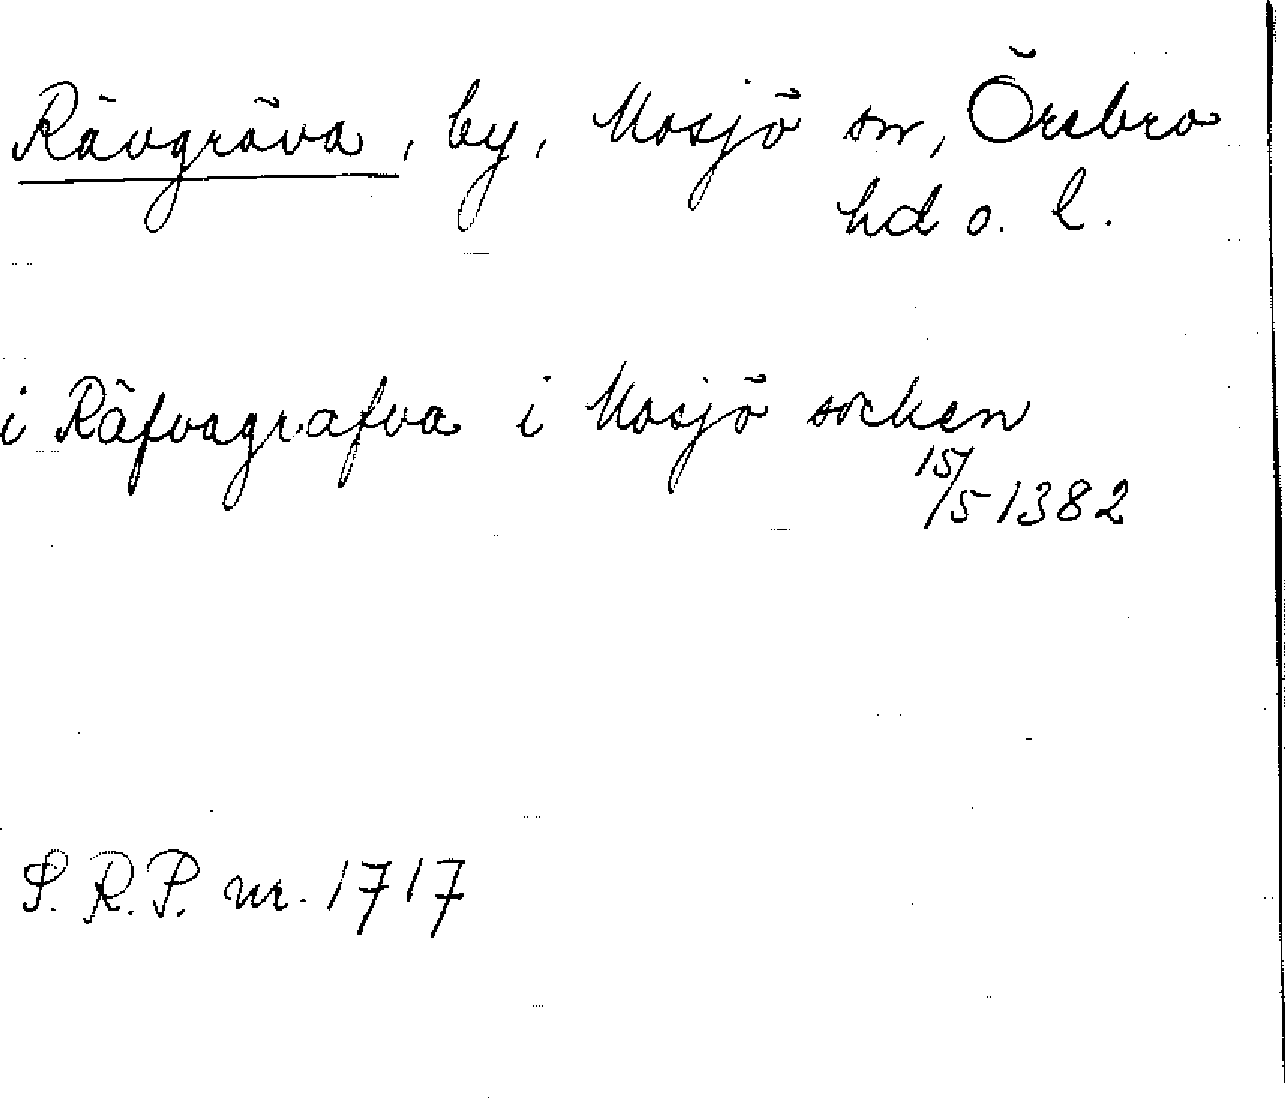 Rävgräva, by, Mosjö sn, Örebro
hd o. l.
i Räfvagrafva i Mosjö socken
15/5 1382
S.R.P. nr. 1717